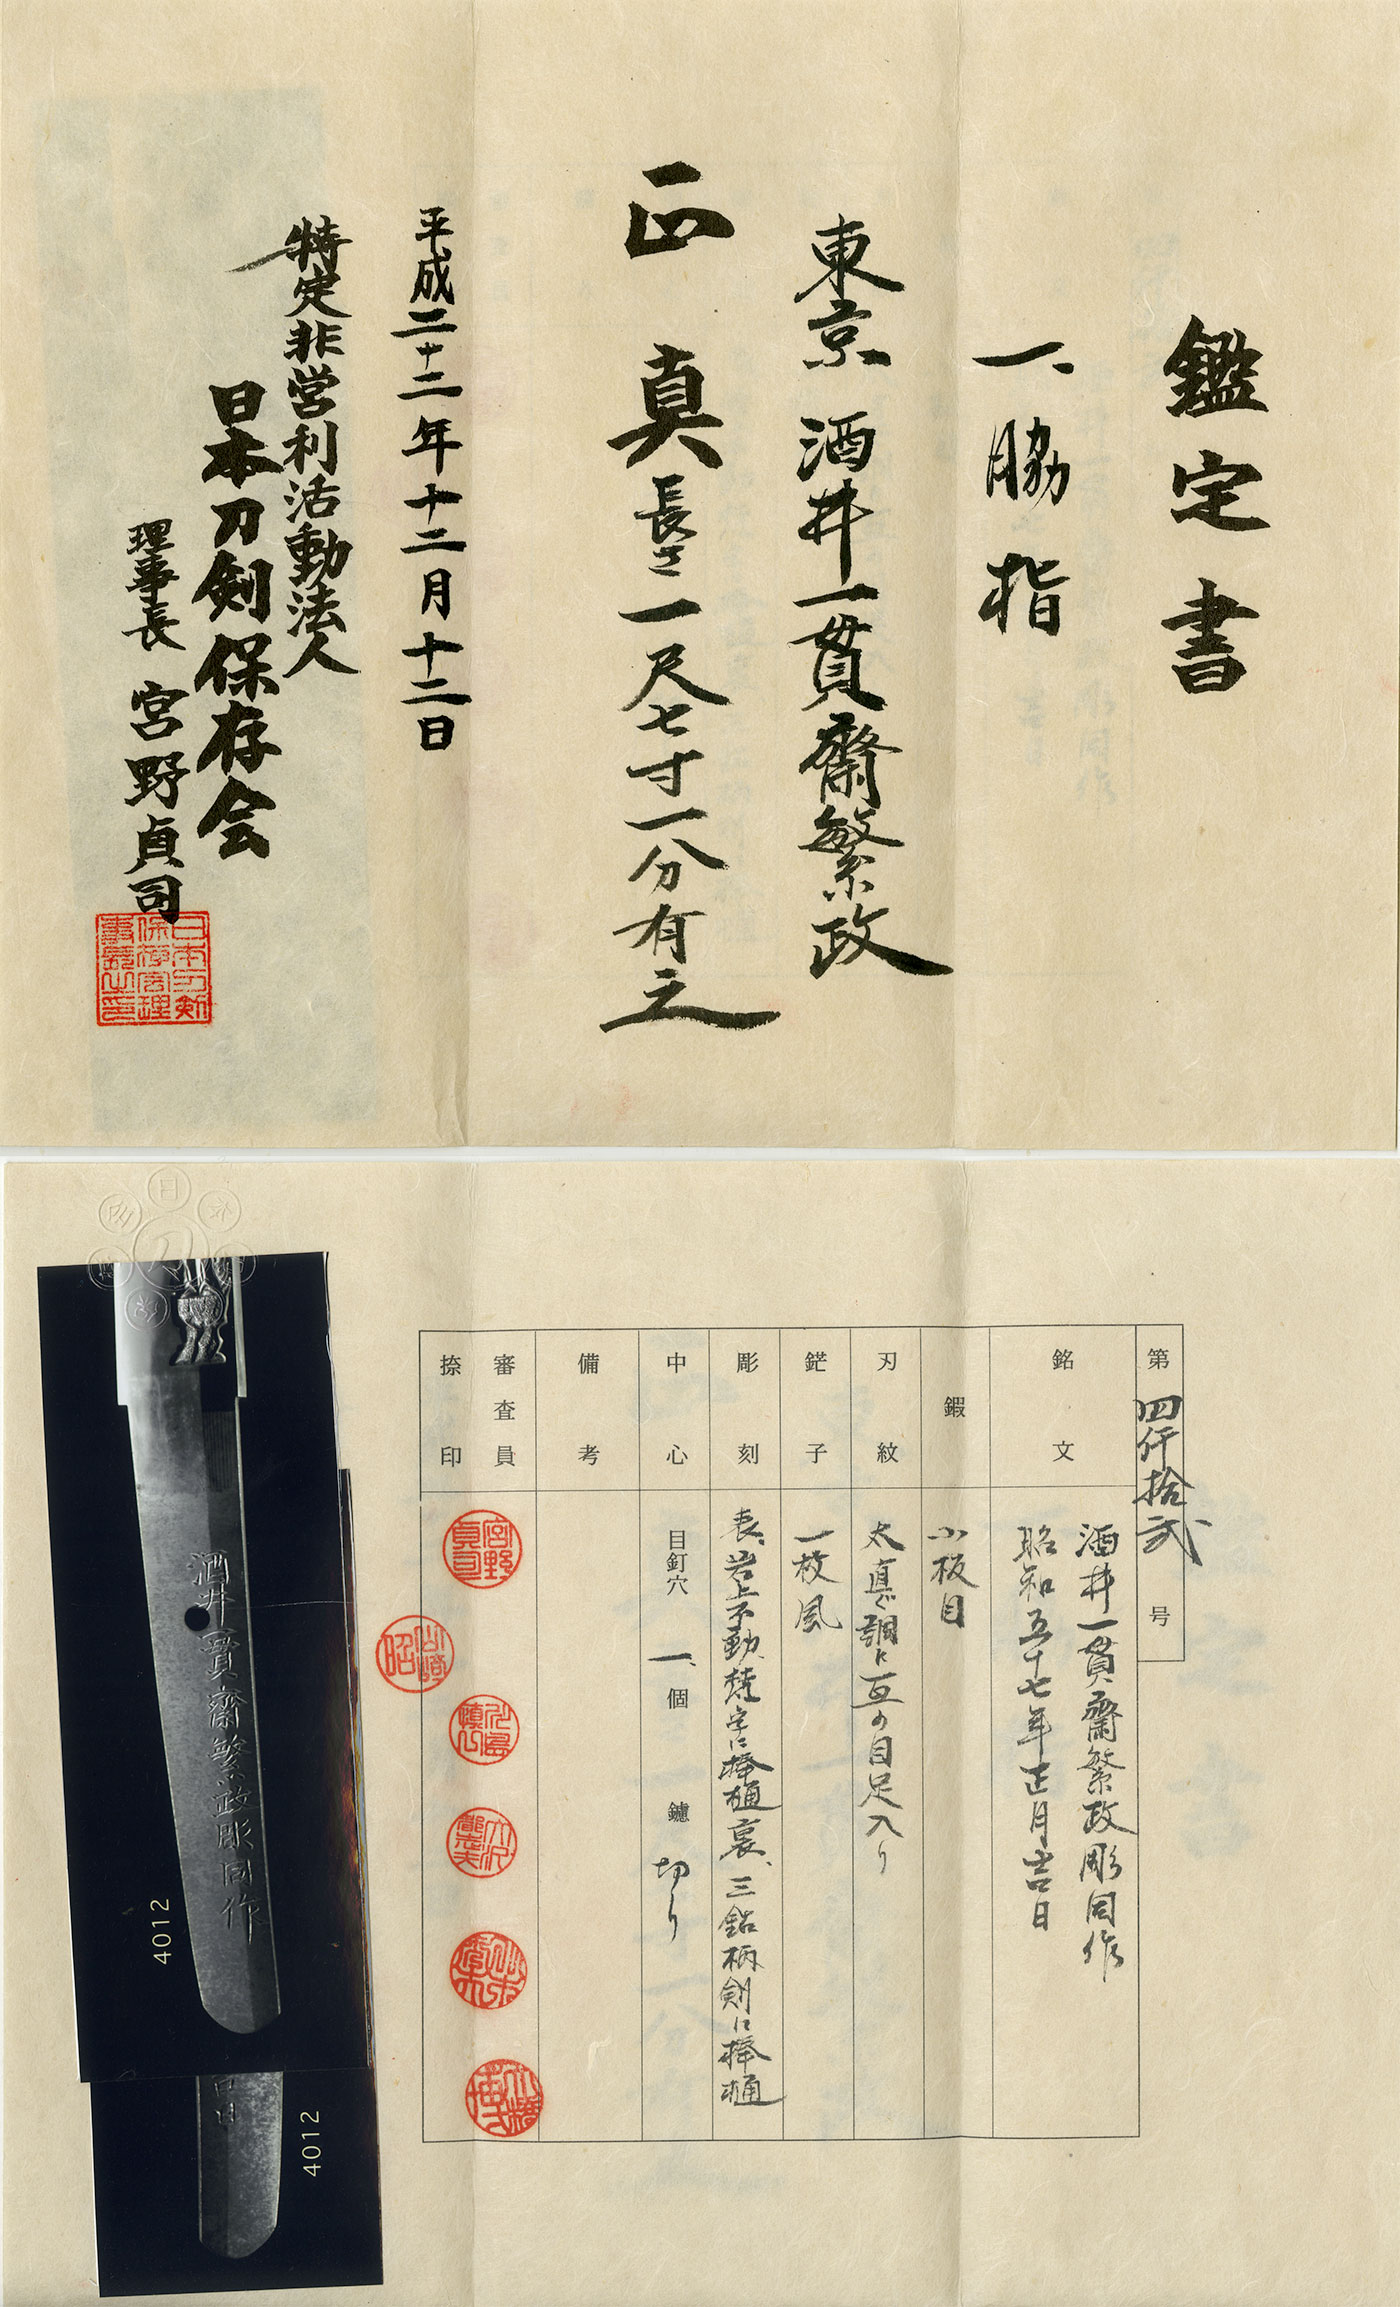 鑑定書
一、脇指
東京 酒井一貫齋繁政
正真 長さ一尺七寸一分有之
平成二十二年十二月十二日
特定非営利活動法人
日本刀剣保存会
理事長 宮野貞司
日本刀剣
保存会理
事長之印
第四仟拾弐号
銘文
酒井一貫齋繁政彫同作
昭和五十七年正月吉日
鍜
小板目
刃紋
太直ぐ調に互の目足入り
鋩子
一枚風
彫刻
表、岩上不動、梵字に棒樋裏、三鈷柄剣に棒樋
中心
目釘穴 一、個 鑢 切り
備考
審査員
捺印
宮野
貞司
酒井一貫齋繁政彫同作
4012
4012